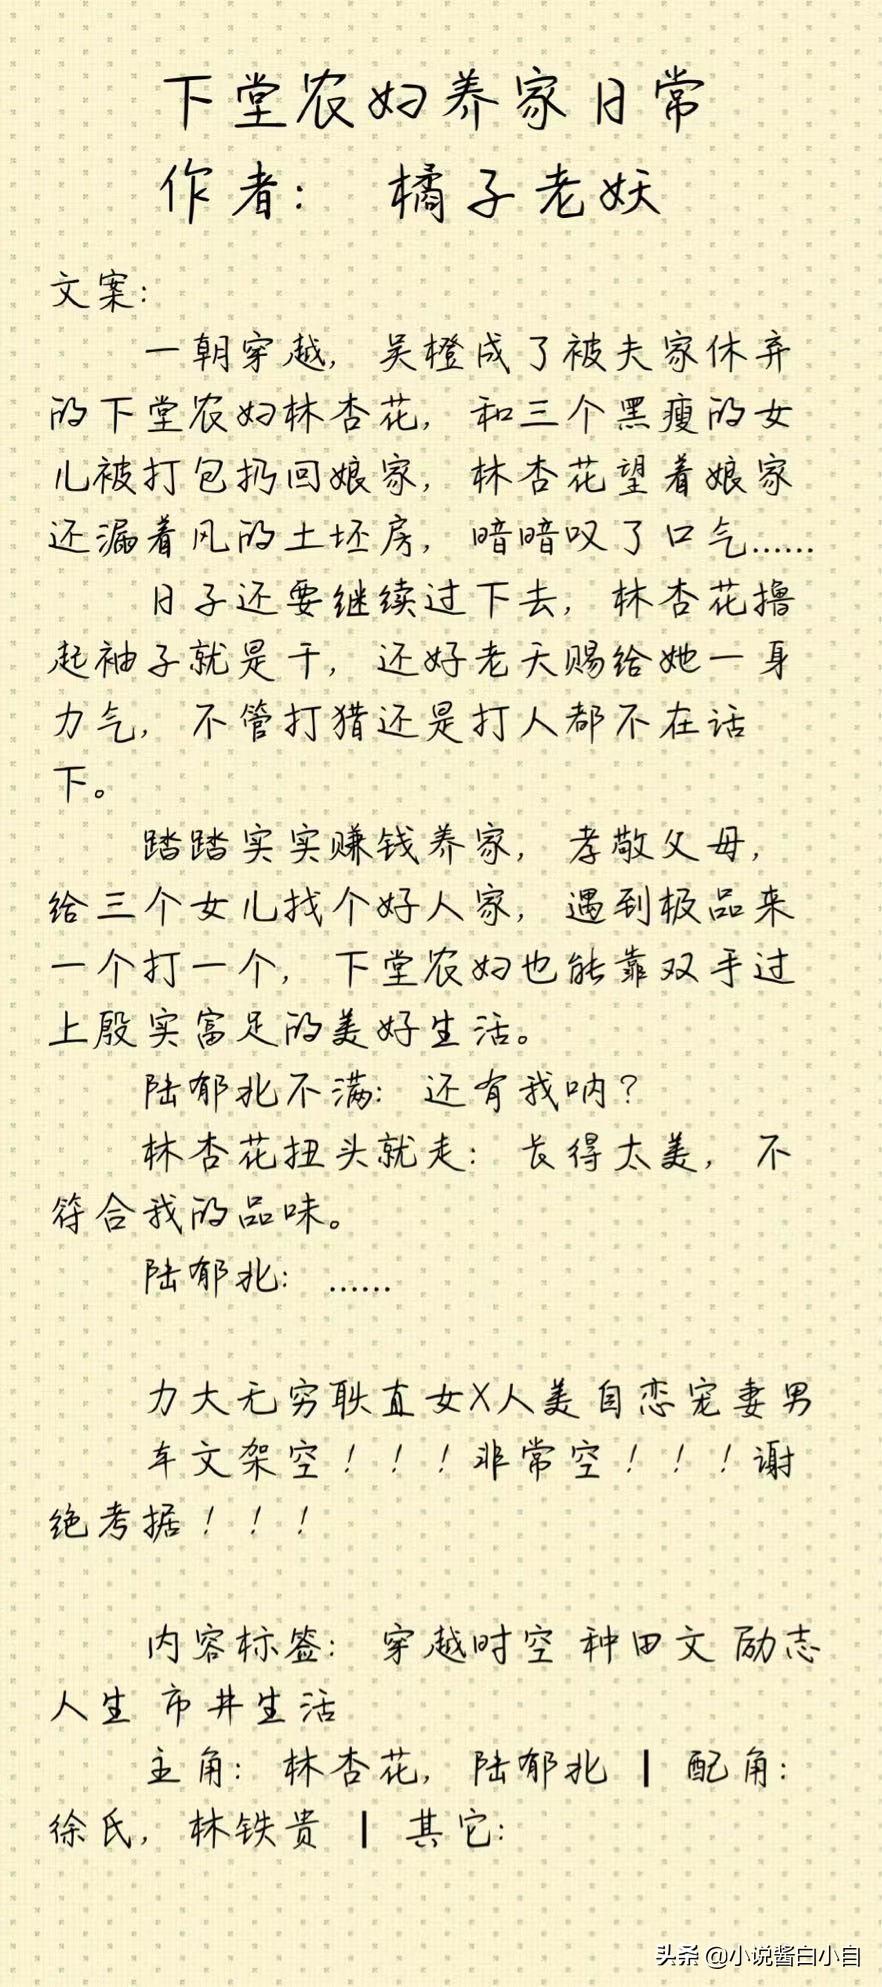 下堂农妇养家日常
作者: 橘子老妖
文案:
一朝穿越, 吴橙成了被夫家休弃
的下堂农妇林杏花, 和三个黑瘦的女
儿被打包扔回娘家, 林杏花望着娘家
还漏着风的土坯房, 暗暗叹了口气……
日子还要继续过下去, 林杏花撸
起袖子就是干, 还好老天赐给她一身
力气, 不管打猎还是打人都不在话
下。
踏踏实实赚钱养家, 孝敬父母,
给三个女儿找个好人家, 遇到极品来
一个打一个, 下堂农妇也能靠双手过
上殷实富足的美好生活。
陆郁北不满: 还有我呐?
林杏花扭头就走: 长得太美, 不
符合我的品味。
陆郁北: ……
力大无穷耿直女X人美自恋宠妻男
本文架空!!!非常空!!!谢
绝考据!!!
内容标签: 穿越时空 种田文 励志
人生 市井生活
主角: 林杏花, 陆郁北 ┃ 配角:
徐氏, 林铁贵 ┃ 其它:
头条 @小说酱白小自